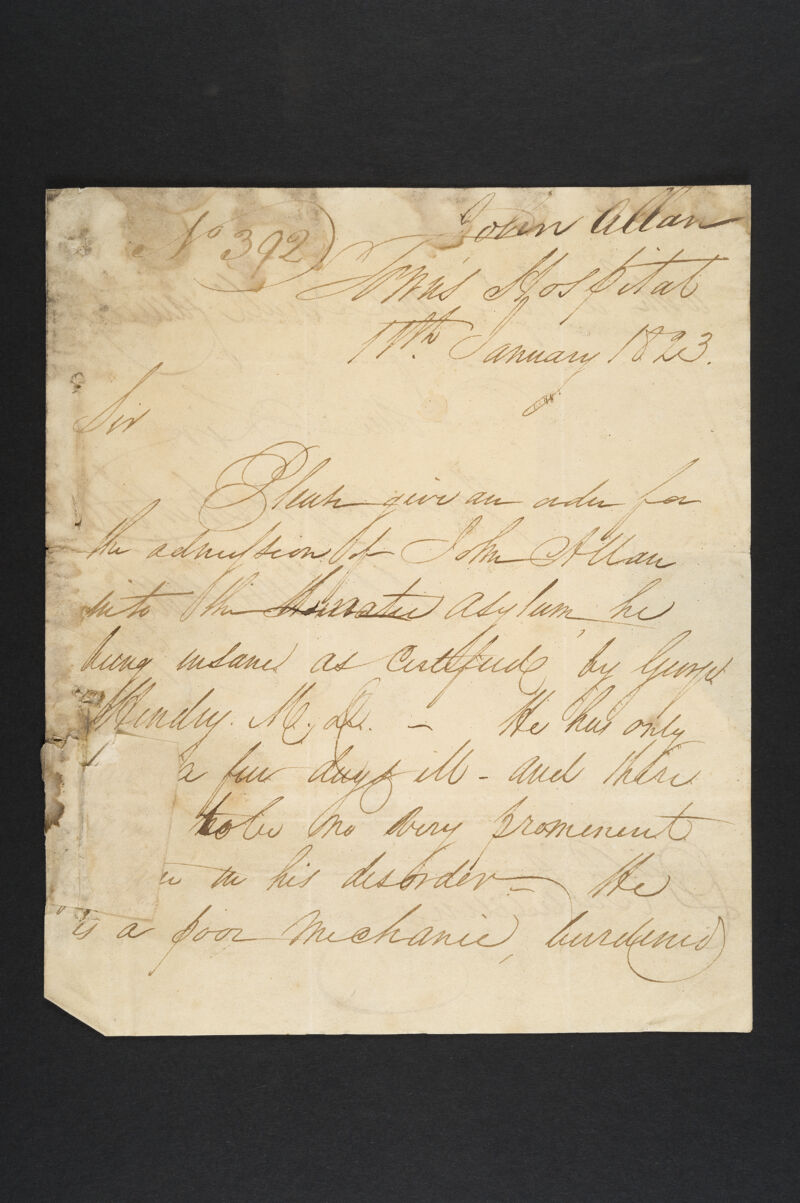 John Allan
No 392
Towns Hospital
11th January 1823.
Sir
Please give an order for
the admission of John Allan
into the Asylum, he
being insane as certified by George
Hendry. M.D. – He has only
a few days ill – and there
to be no very prominent
in his disorder – He
is a poor mechanic, burdened